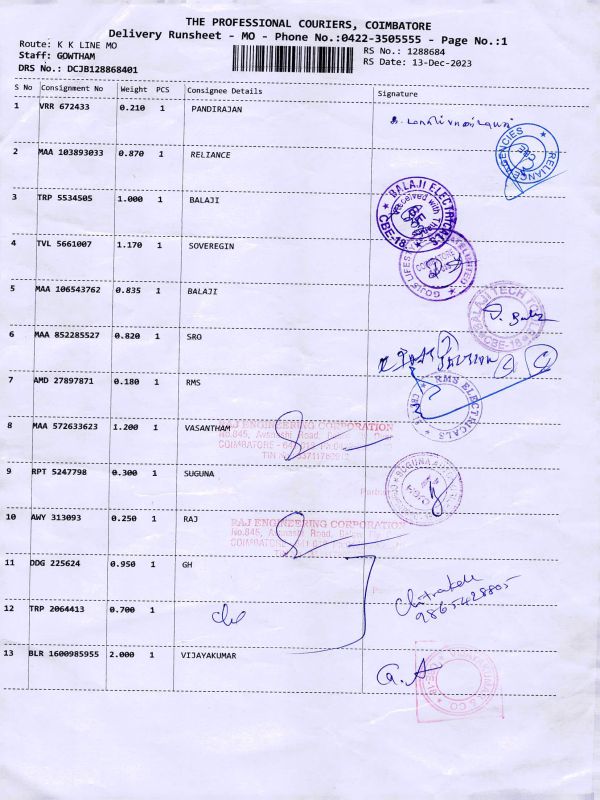 THE PROFESSIONAL COURIERS, COIMBATORE
Delivery Runsheet - MO - Phone No.:0422-3505555 - Page No.:1
Route: K K LINE MO
RS No.: 1288684
Staff: GOWTHAM
RS Date: 13-Dec-2023
DRS No.: DCJB128868401
S No Consignment No Weight PCS Consignee Details Signature
1 VRR 672433 0.210 1 PANDIRAJAN
2 MAA 103893033 0.870 1 RELIANCE
RELIANCE AGENCIES
CBE
3 TRP 5534505 1.000 1 BALAJI
BALAJI ELECTRICALS
Received with Thanks
CBE-18
4 TVL 5661007 1.170 1 SOVEREGIN
5 MAA 106543762 0.835 1 BALAJI
BALAJI TECH
CBE-18
6 MAA 852285527 0.820 1 SRO
7 AMD 27897871 0.180 1 RMS
RMS ELECTRICALS
8 MAA 572633623 1.200 1 VASANTHAM
RAJ ENGINEERING CORPORATION
No.845, Avanashi Road,
COIMBATORE
9 RPT 5247798 0.300 1 SUGUNA
SUGUNA
10 AWY 313093 0.250 1 RAJ
RAJ ENGINEERING CORPORATION
No.845, Avanashi Road,
11 DDG 225624 0.950 1 GH
9865428805
12 TRP 2064413 0.700 1
13 BLR 1600985955 2.000 1 VIJAYAKUMAR
G. A